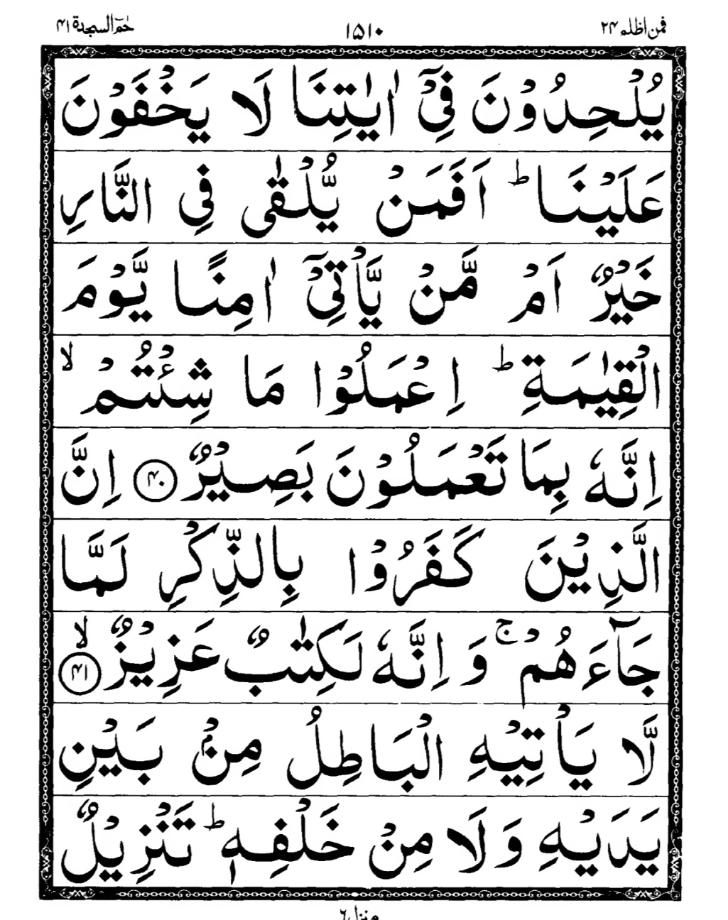 فمن اظلم ۲۴ ۱۵۱۰ حٰمٓ السجدة ۴۱
يُلْحِدُوْنَ فِيْۤ اٰيٰتِنَا لَا يَخْفَوْنَ
عَلَيْنَا ؕ اَفَمَنْ يُّلْقٰى فِي النَّارِ
خَيْرٌ اَمْ مَّنْ يَّاْتِيْۤ اٰمِنًا يَّوْمَ
الْقِيٰمَةِ ؕ اِعْمَلُوْا مَا شِئْتُمْ ۙ
اِنَّهٗ بِمَا تَعْمَلُوْنَ بَصِيْرٌ ﴿۴۰﴾ اِنَّ
الَّذِيْنَ كَفَرُوْا بِالذِّكْرِ لَمَّا
جَآءَهُمْ ۚ وَ اِنَّهٗ لَكِتٰبٌ عَزِيْزٌ ۙ﴿۴۱﴾
لَّا يَاْتِيْهِ الْبَاطِلُ مِنْۢ بَيْنِ
يَدَيْهِ وَلَا مِنْ خَلْفِهٖ ؕ تَنْزِيْلٌ
منزل ۶